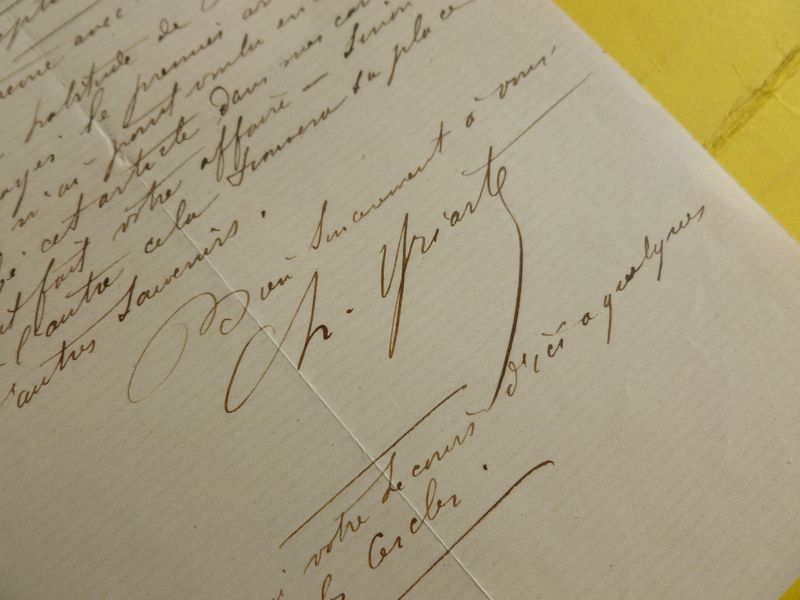 avec
habitude de
le premier ar
n'ai point voulu en
cet article dans mes car
fait votre affaire — Sinon
l'autre cela trouvera sa place
autres souvenirs.
Bien sincèrement à vous.
Ch. Yriarte
votre secours d'ici à quelques
Cercles.